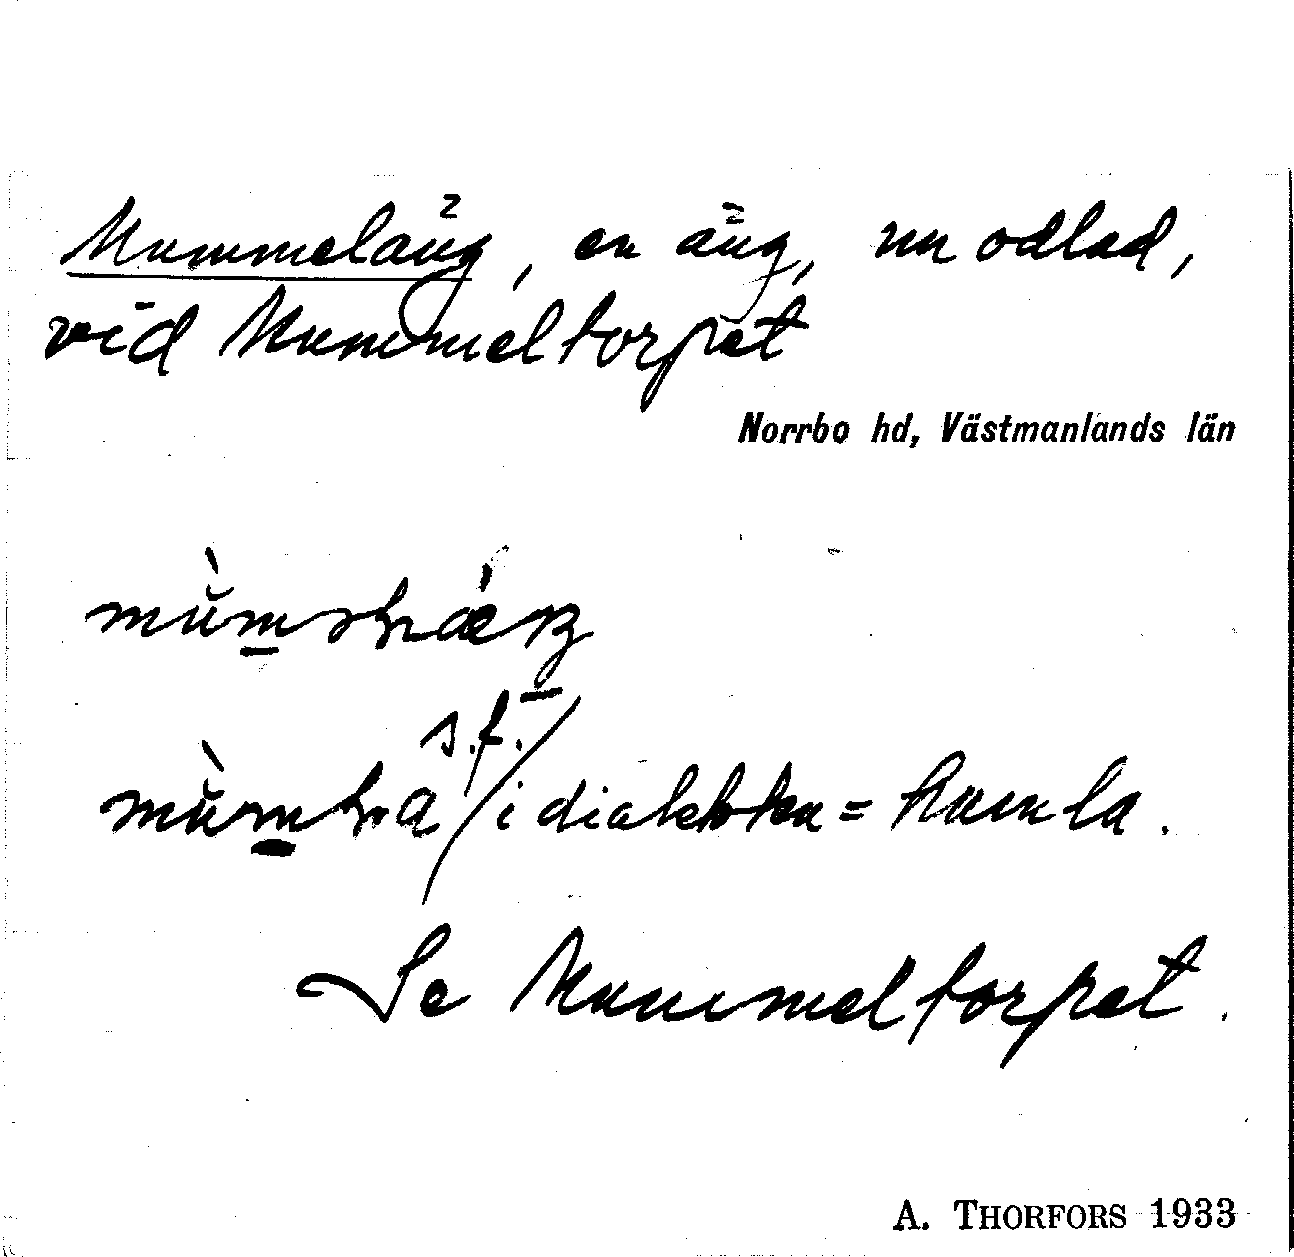 Mummeläng, en äng, nu odlad,
vid Mummeltorpet
Norrbo hd, Västmanlands län
s.f.
i dialekten = humla.
Se Mummeltorpet.
A. THORFORS 1933